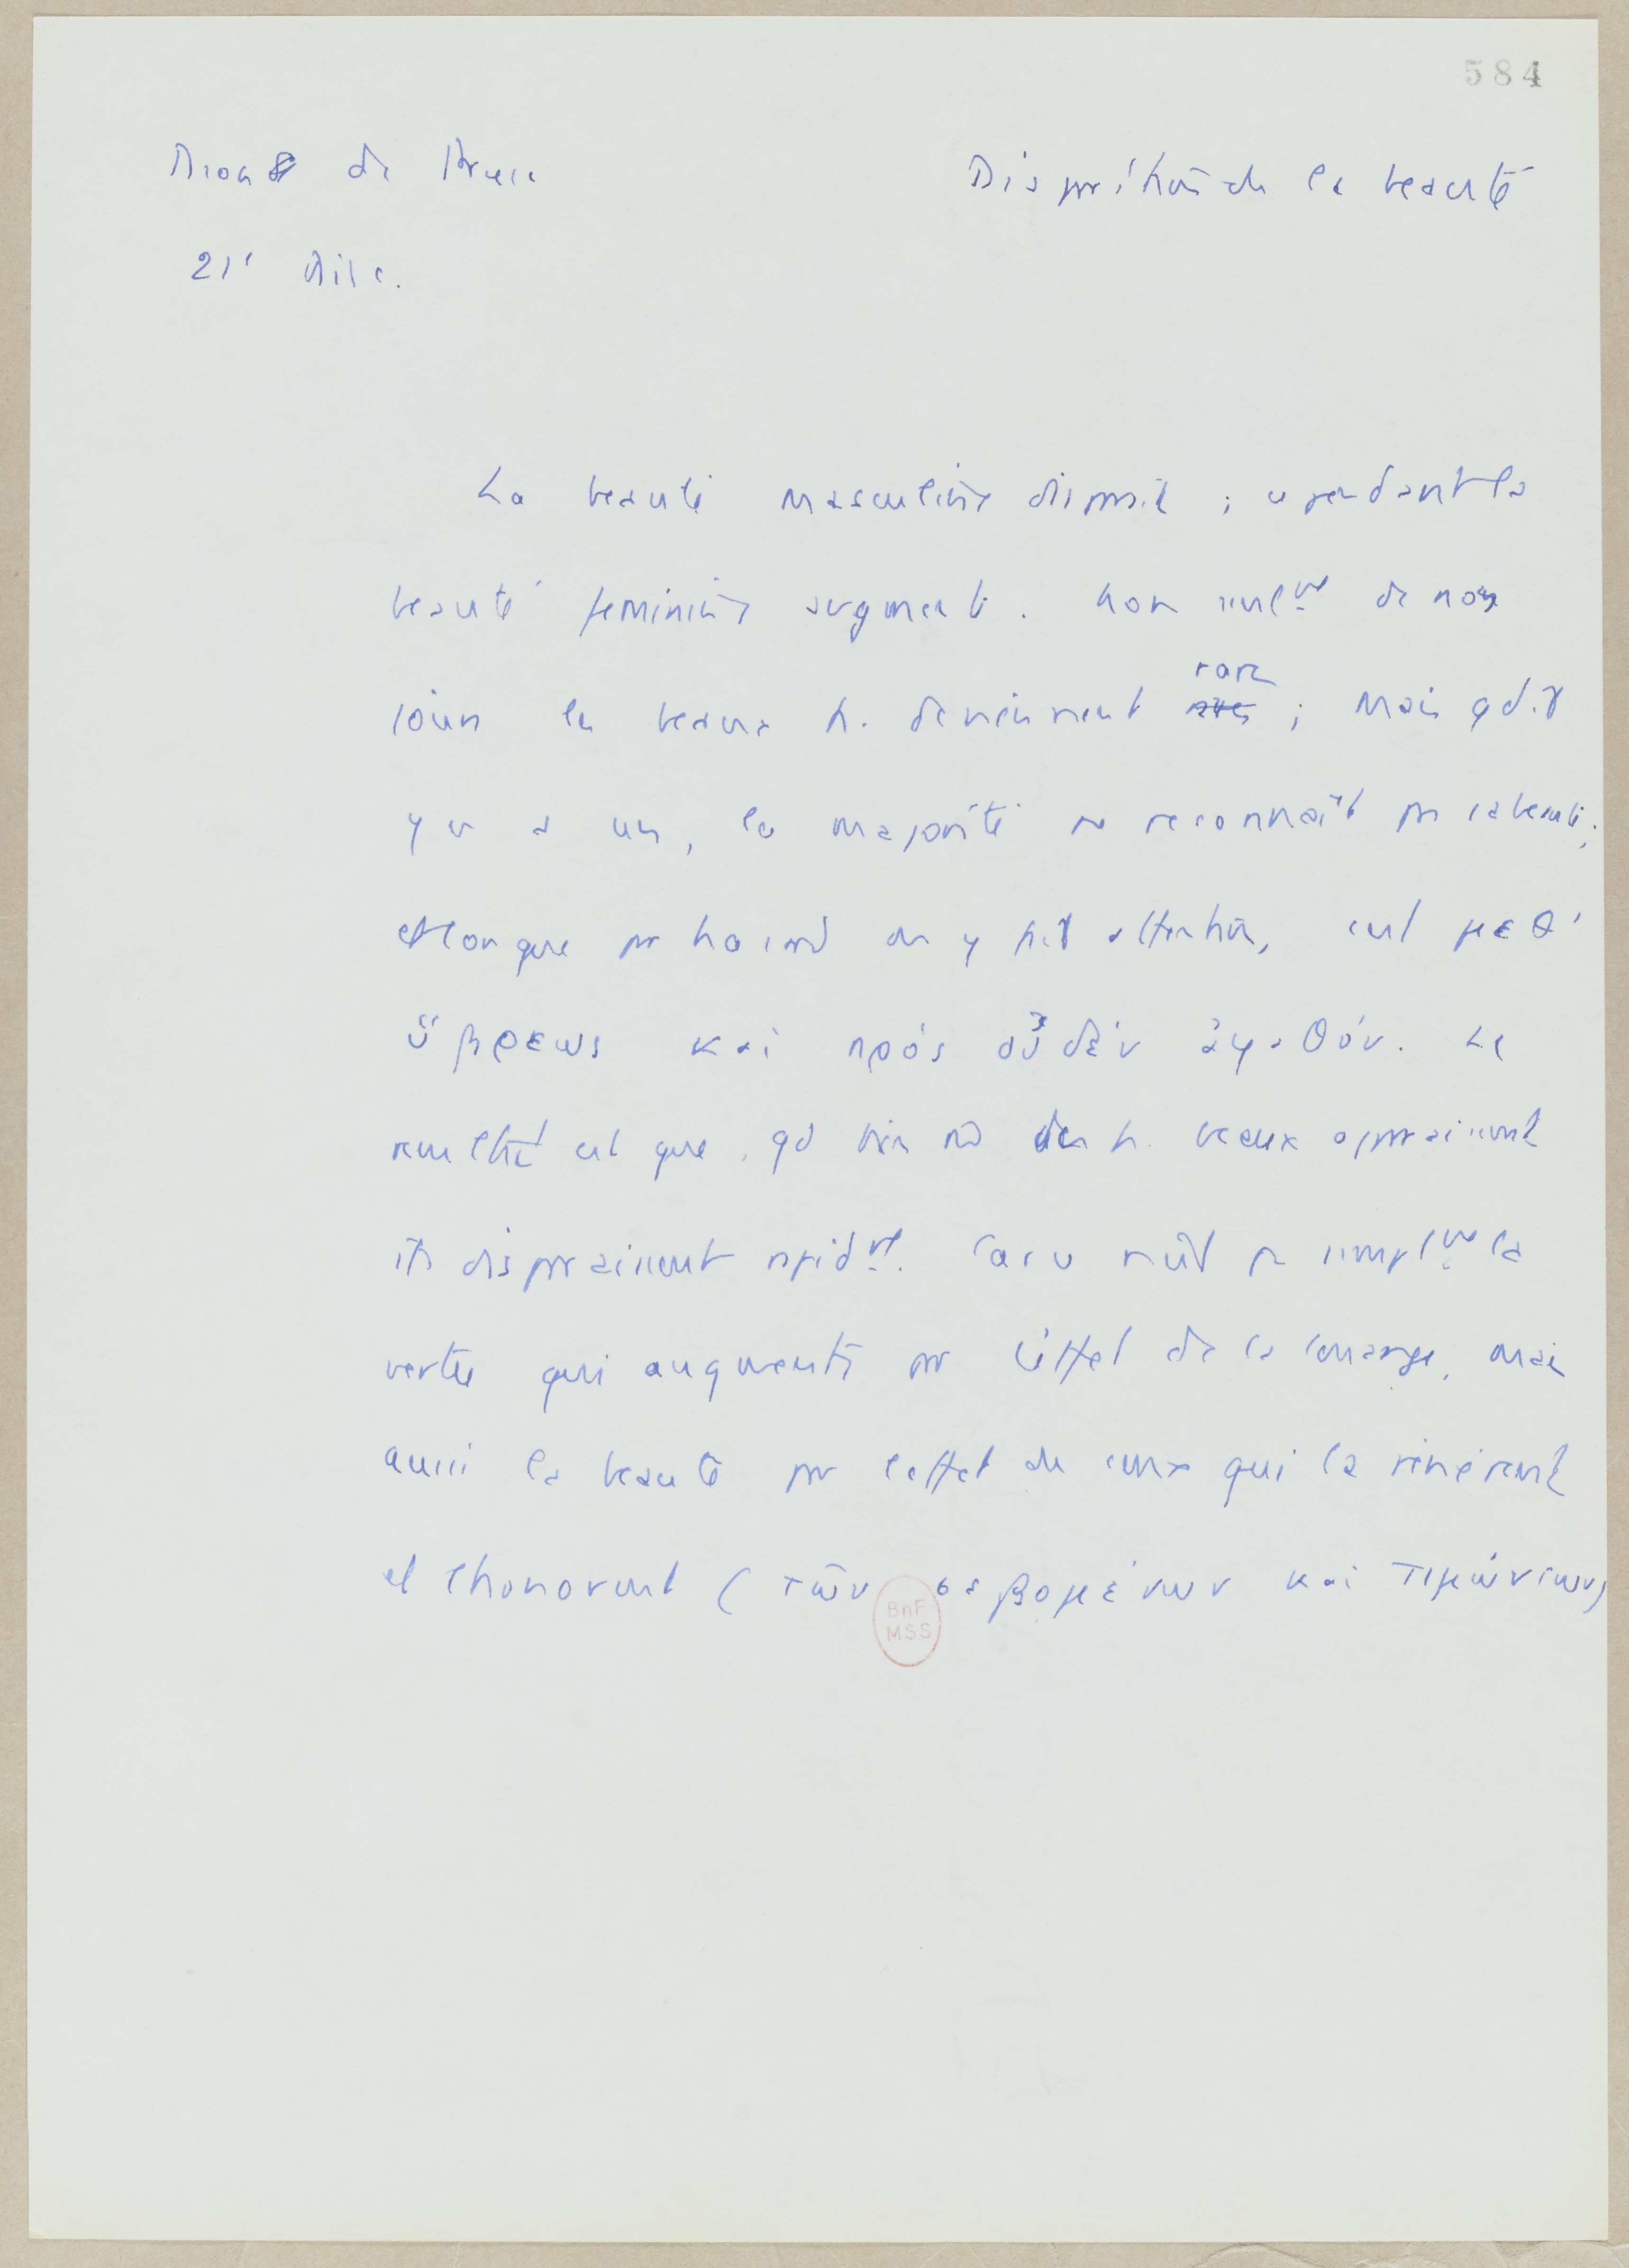 584
Dion de Pruse
Disparition de la beauté
21e Disc.
La beauté masculine disparait ; cependant la
beauté feminine augmente. Non seulmt de nos
jours les beaux h. deviennent rares ; mais qd il
y en a un, la majorité ne reconnaît pas sa beauté ;
et lorsque par hasard on y fait attention, c'est μεθ'
ὕβρεως καὶ πρός οὐδέν ἀγαθόν. Le
resultat est que, qd bien même des h. beaux apparaissent
ils disparaissent rapidmt. Car ce n'est pas simplmt la
vertu qui augmente par l'effet de la louange, mais
aussi la beauté par l'effet de ceux qui la vénèrent
et l'honorent (τῶν σεβομένων καὶ τιμώντων)
BnF
MSS